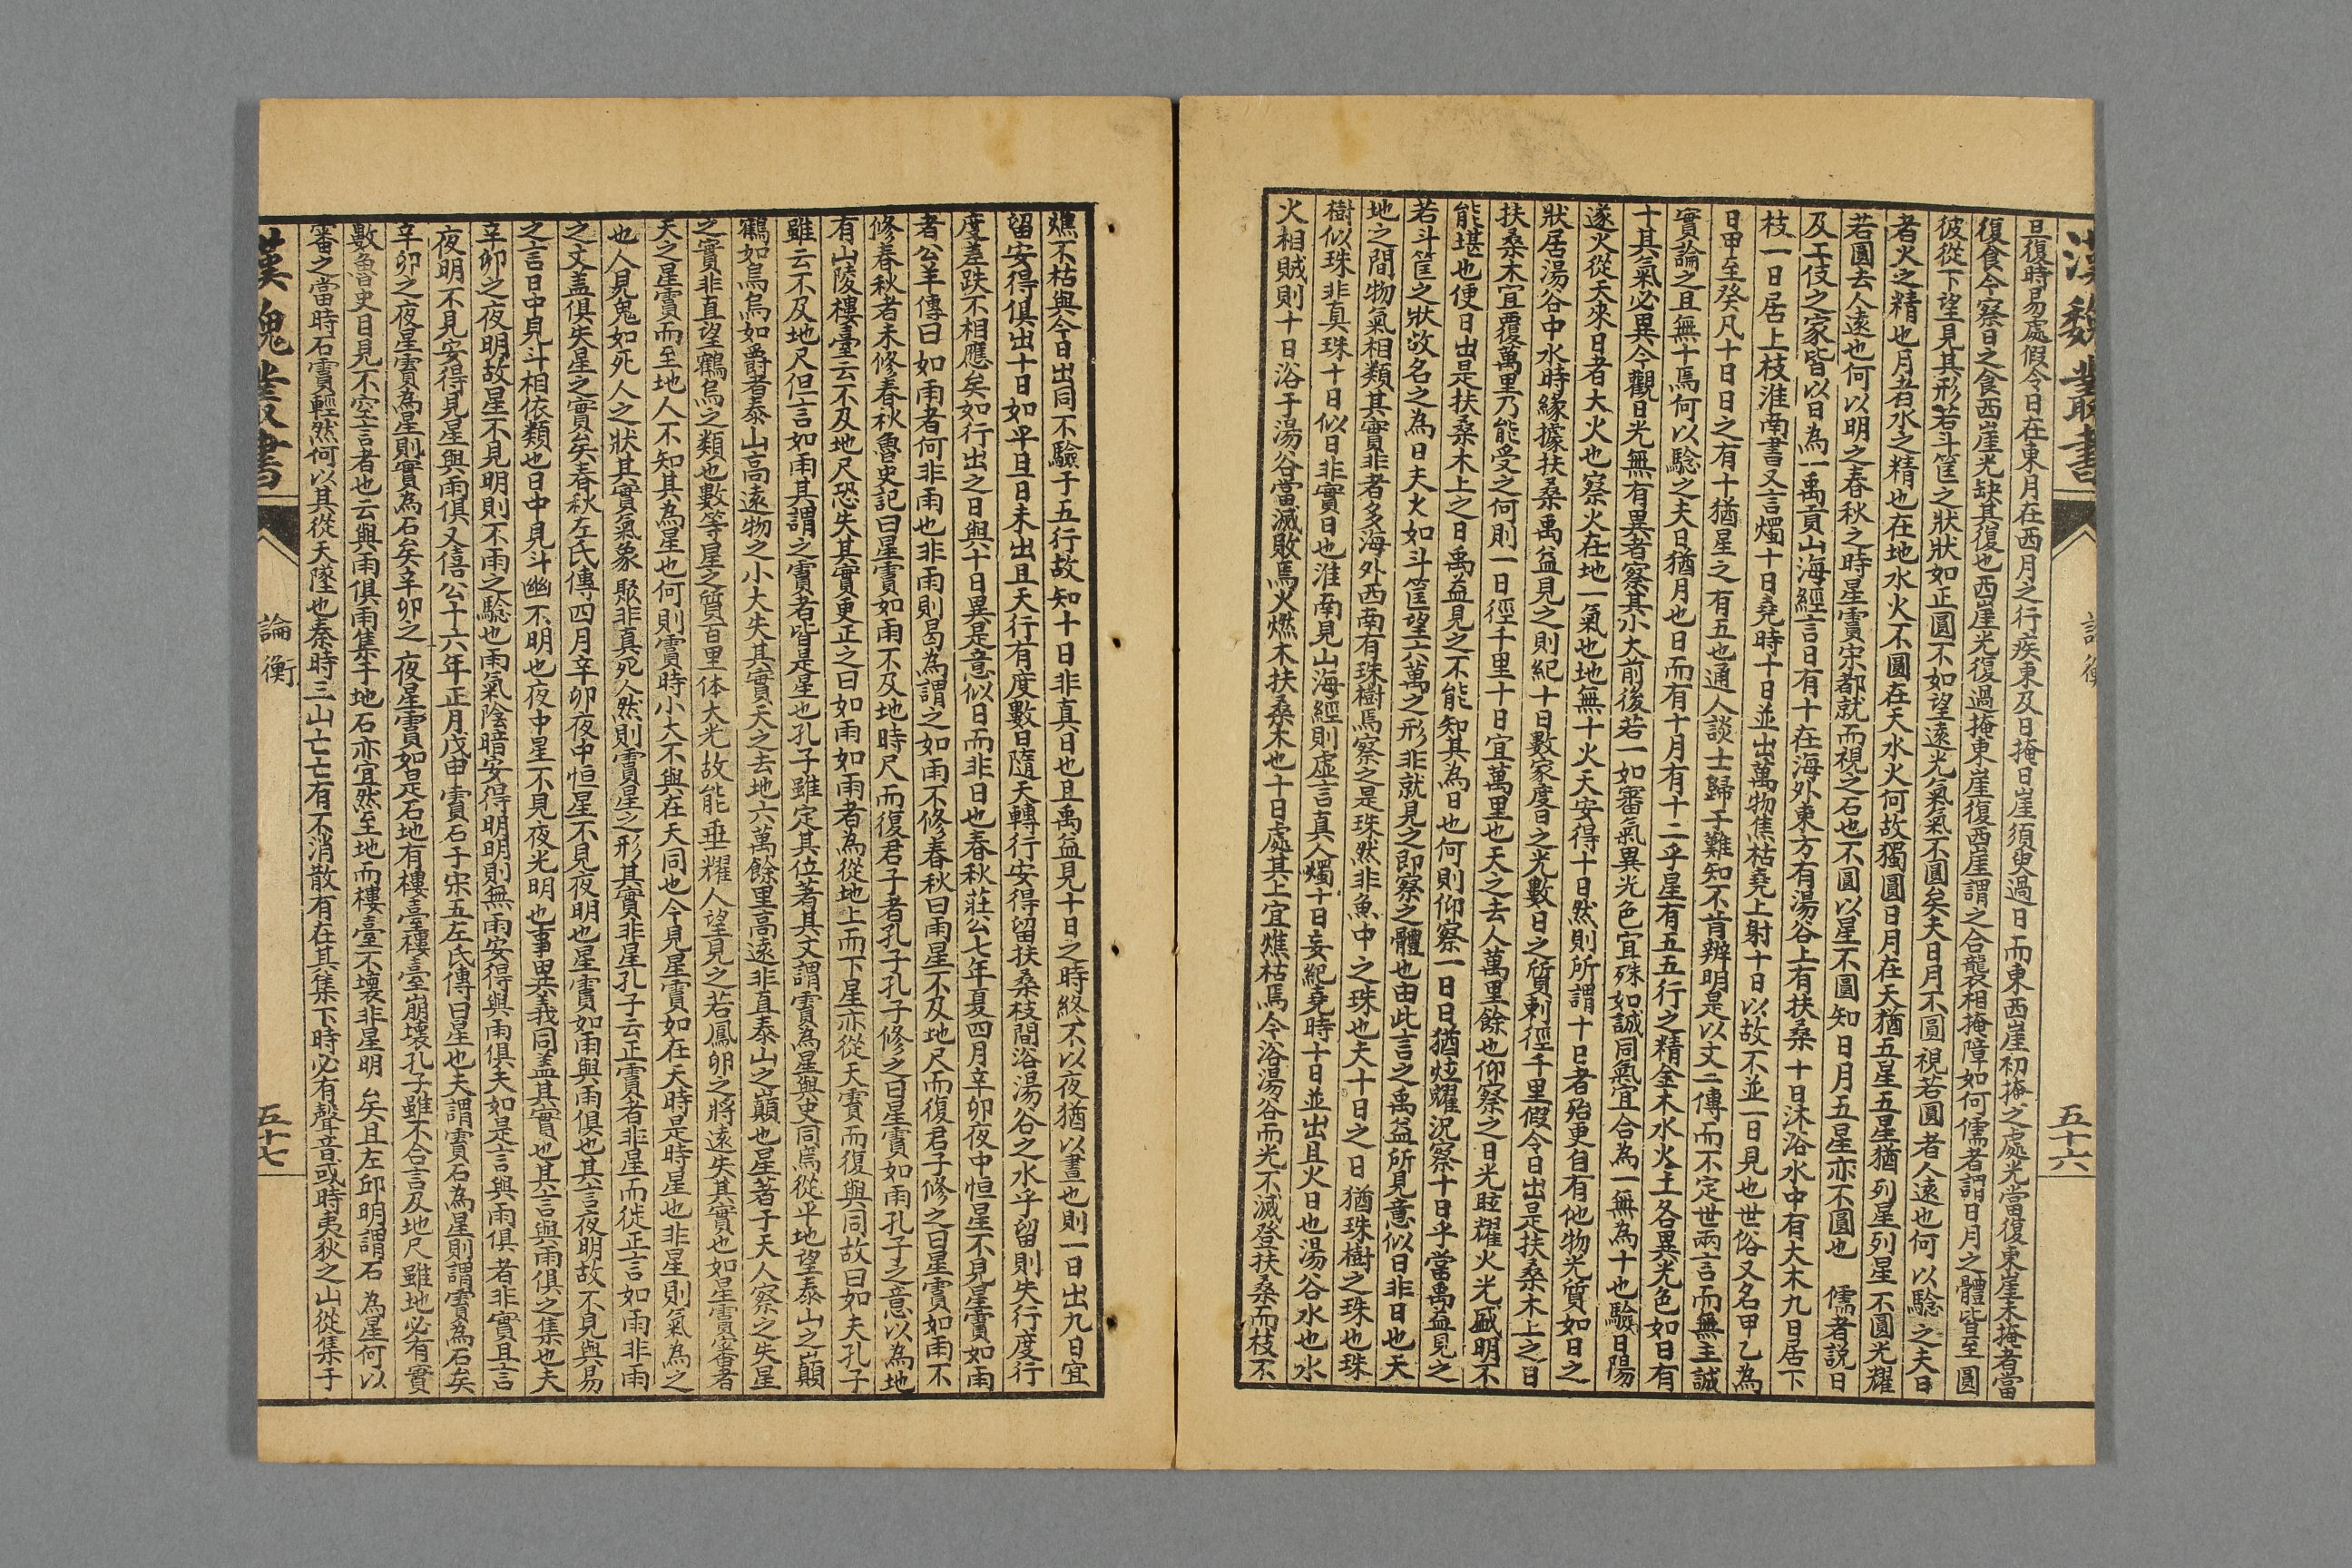 漢魏叢書
論衡
五十六
旦復時易處假令日在東月在西月之行疾東及日掩日崖須臾過日而東西崖初掩之處光當復東崖未掩者當
復食今察日之食西崖光缺其復也西崖光復過掩東崖復西崖謂之合襲相掩障如何儒者謂日月之體皆至圓
彼從下望見其形若斗筐之狀狀如正圓不如望遠光氣氣不圓矣夫日月不圓視若圓者人遠也何以驗之夫日
者火之精也月者水之精也在地水火不圓在天水火何故獨圓日月在天猶五星五星猶列星列星不圓光耀
若圓去人遠也何以明之春秋之時星霣宋都就而視之石也不圓以星不圓知日月五星亦不圓也 儒者說日
及工伎之家皆以日為一禹貢山海經言日有十在海外東方有湯谷上有扶桑十日沐浴水中有大木九日居下
枝一日居上枝淮南書又言燭十日堯時十日並出萬物焦枯堯上射十日以故不並一日見也世俗又名甲乙為
日甲至癸凡十日日之有十猶星之有五也通人談士歸于難知不肯辨明是以文二傳而不定世兩言而無主誠
實論之且無十焉何以驗之夫日猶月也日而有十月有十二乎星有五五行之精金木水火土各異光色如日有
十其氣必異今觀日光無有異者察其小大前後若一如審氣異光色宜殊如誠同氣宜合為一無為十也驗日陽
遂火從天來日者大火也察火在地一氣也地無十火天安得十日然則所謂十日者殆更自有他物光質如日之
狀居湯谷中水時緣據扶桑禹益見之則紀十日數家度日之光數日之質剌徑千里假令日出是扶桑木上之日
扶桑木宜覆萬里乃能受之何則一日徑千里十日宜萬里也天之去人萬里餘也仰察之日光眩耀火光盛明不
能堪也使日出是扶桑木上之日禹益見之不能知其為日也何則仰察一日日猶炫耀況察十日乎當禹益見之
若斗筐之狀故名之為日夫火如斗筐望六萬之形非就見之即察之體也由此言之禹益所見意似日非日也天
地之間物氣相類其實非者多海外西南有珠樹焉察之是珠然非魚中之珠也夫十日之日猶珠樹之珠也珠
樹似珠非真珠十日似日非實日也淮南見山海經則虛言真人燭十日妄紀堯時十日並出且火日也湯谷水也水
火相賊則十日浴于湯谷當滅敗焉火燃木扶桑木也十日處其上宜燋枯焉今浴湯谷而光不滅登扶桑而枝不
燋不枯與今日出同不驗于五行故知十日非真日也且禹益見十日之時終不以夜猶以晝也則一日出九日宜
留安得俱出十日如平旦日未出且天行有度數日隨天轉行安得留扶桑枝間浴湯谷之水乎留則失行度行
度差跌不相應矣如行出之日與十日異是意似日而非日也春秋莊公七年夏四月辛卯夜中恒星不見星霣如雨
者公羊傳曰如雨者何非雨也非雨則曷為謂之如雨不修春秋曰雨星不及地尺而復君子修之曰星霣如雨不
修春秋者未修春秋魯史記曰星霣如雨不及地時尺而復君子者孔子孔子修之曰星霣如雨孔子之意以為地
有山陵樓臺云不及地尺恐失其實更正之曰如雨如雨者為從地上而下星亦從天霣而復與同故曰如夫孔子
雖云不及地尺但言如雨其謂之霣者皆是星也孔子雖定其位著其文謂霣為星與史同焉從平地望泰山之巔
鶴如烏烏如爵者泰山高遠物之小大失其實天之去地六萬餘里高遠非直泰山之巔也星著于天人察之失星
之實非直望鶴烏之類也數等星之質百里体大光故能垂耀人望見之若鳳卵之將遠失其實也如星霣審者
天之星霣而至地人不知其為星也何則霣時小大不與在天同也今見星霣如在天時是時星也非星則氣為之
也人見鬼如死人之狀其實氣象聚非真死人然則霣星之形其實非星孔子云正霣者非星而徙正言如雨非雨
之文盖俱失星之實矣春秋左氏傳四月辛卯夜中恒星不見夜明也星霣如雨與雨俱也其言夜明故不見與易
之言日中見斗相依類也日中見斗幽不明也夜中星不見夜光明也事異義同盖其實也其言與雨俱之集也夫
辛卯之夜明故星不見明則不雨之驗也雨氣陰暗安得明明則無雨安得與雨俱夫如是言與雨俱者非實且言
夜明不見安得見星與雨俱又僖公十六年正月戊申霣石于宋五左氏傳曰星也夫謂霣石為星則謂霣為石矣
辛卯之夜星霣為星則實為石矣辛卯之夜星霣如是石地有樓臺樓臺崩壞孔子雖不合言及地尺雖地必有實
數魯史目見不空言者也云與雨俱雨集于地石亦宜然至地而樓臺不壞非星明矣且左邱明謂石為星何以
審之當時石霣輕然何以其從天墜也秦時三山亡亡有不消散有在其集下時必有聲音或時夷狄之山從集于
漢魏叢書
論衡
五十七